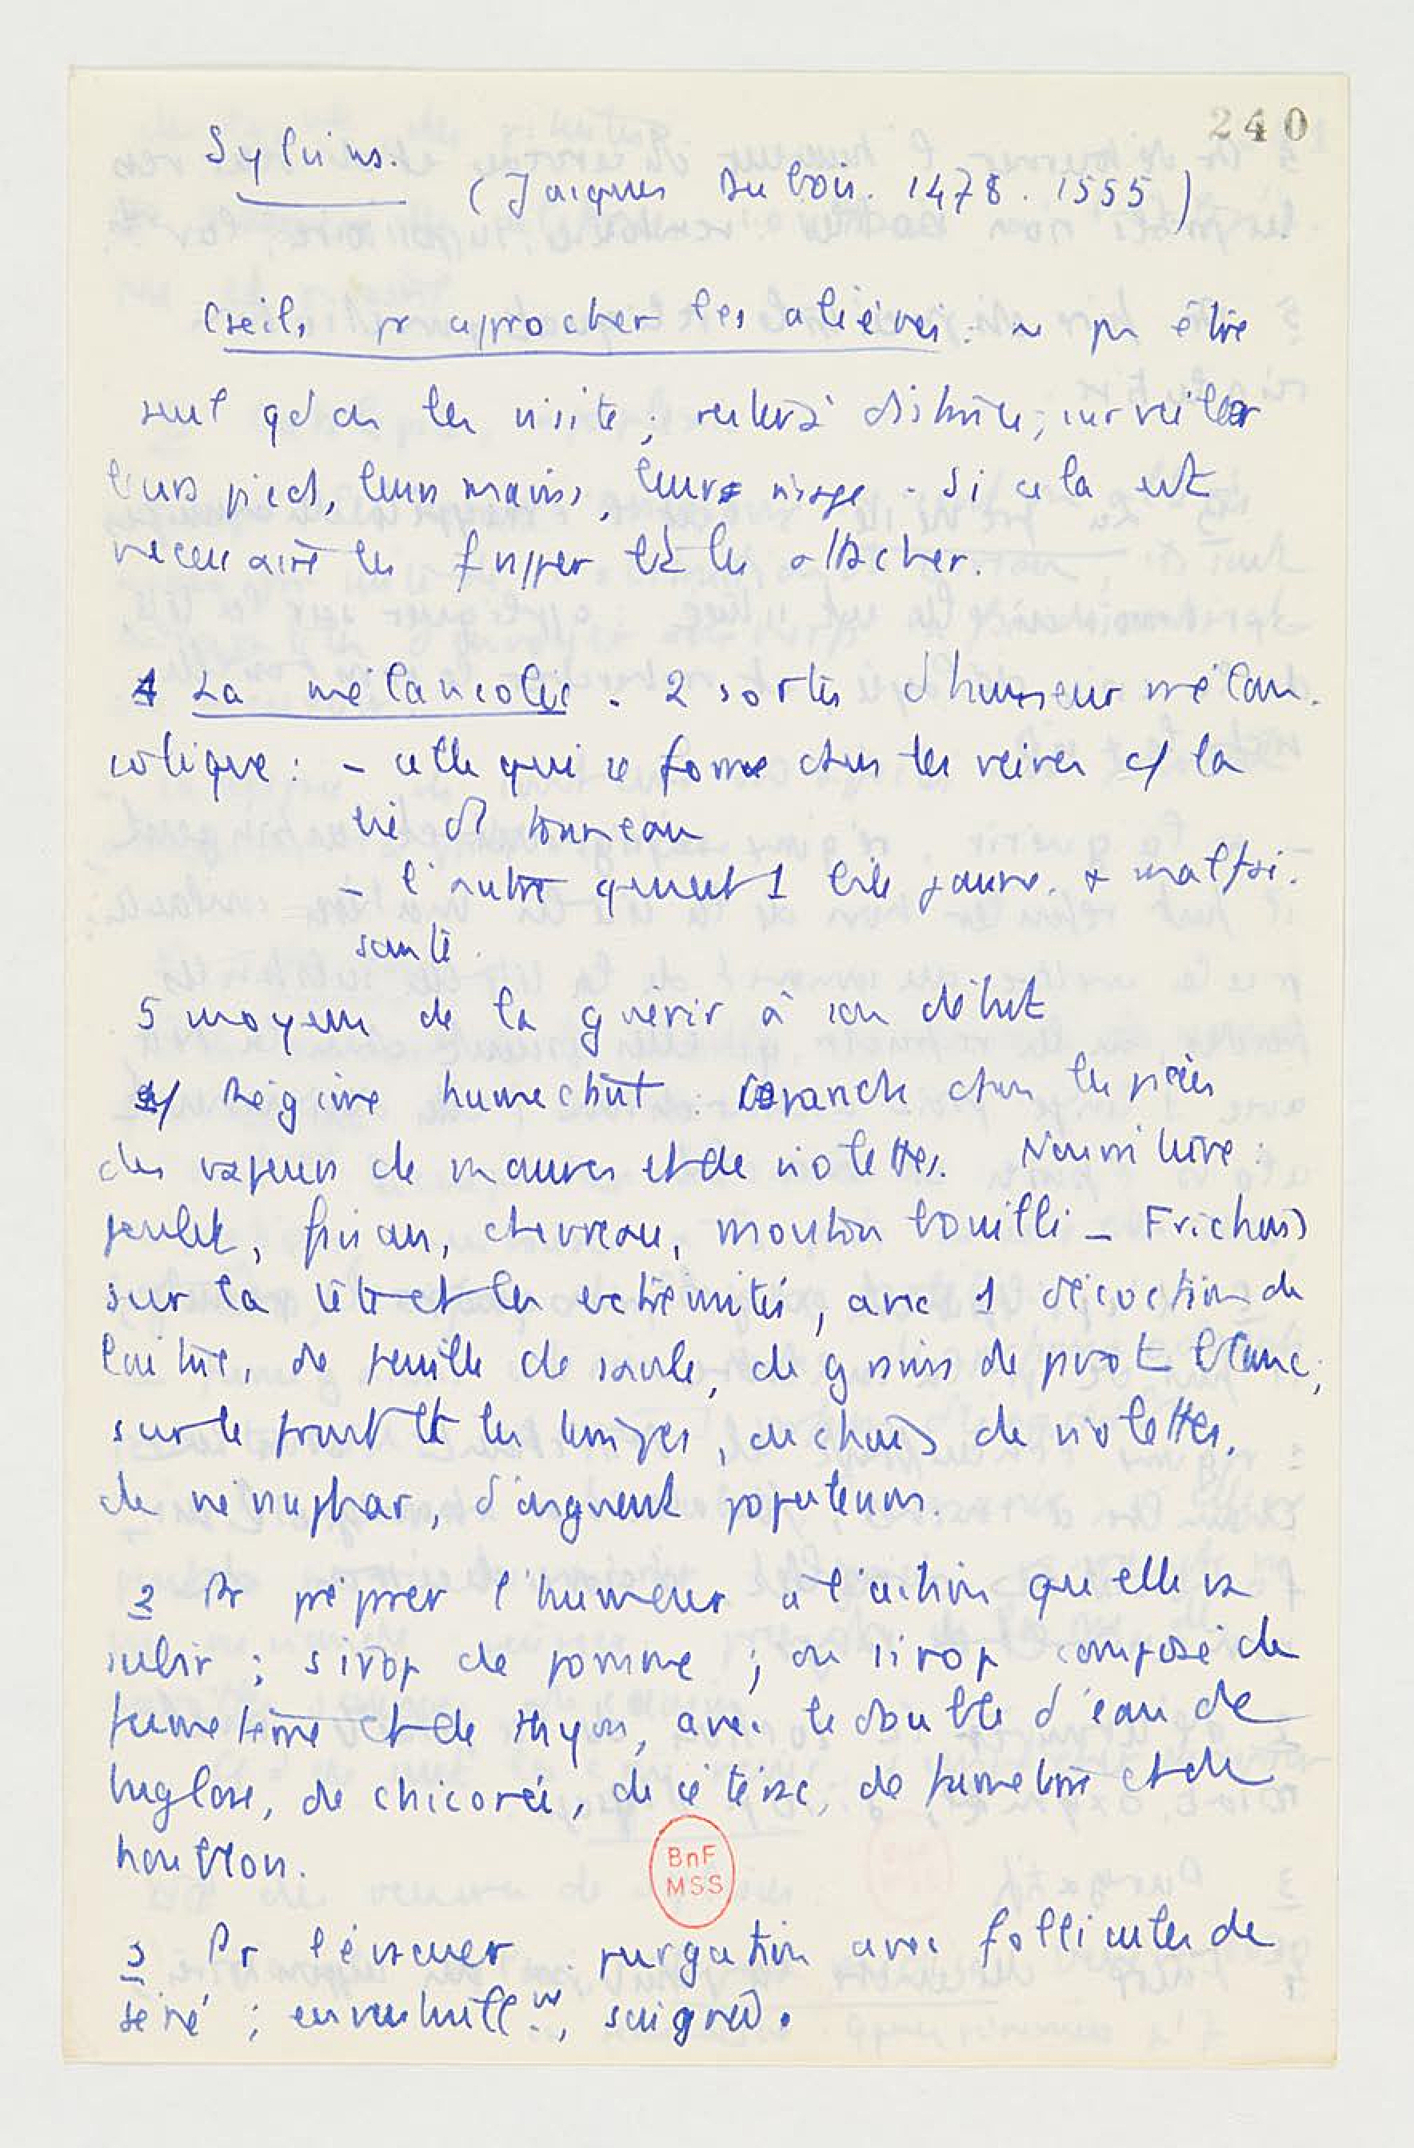 240
Sylvius.
(Jacques Dubois. 1478. 1555)
Cseils pr approcher les aliénés : ne pas être
seul qd on les visite ; rester à distance ; surveiller
leurs pieds, leurs mains, leur visage. Si cela est
nécessaire les frapper et les attacher.
1 La mélancolie. 2 sortes d'humeur mélan-
colique : - celle qui se forme dans les veines c/ la
lie du tonneau
- l'autre qui est 1 bile jaune. + malfai-
sante.
5 moyens de la guérir à son début
1/ Régime humectant : répandre dans les pièces
des vapeurs de mauves et de violettes. Nourriture :
poulet, faisan, chevreau, mouton bouilli - Frictions
sur la tête et les extrémités, avec 1 décoction de
laitue, de feuille de saule, de grains de pavot blanc ;
sur le front et les tempes, de violettes,
de nénuphar, d'onguent populeum.
2 Pr préparer l'humeur à l'action qu'elle va
subir ; sirop de pomme ; ou sirop composé de
fumeterre et de thym, avec le double d'eau de
buglose, de chicorée, de cétérac, de fumeterre et de
houblon.
BnF
MSS
3 Pr l'évacuer : purgation avec follicules de
séné ; éventuellt, saignée.